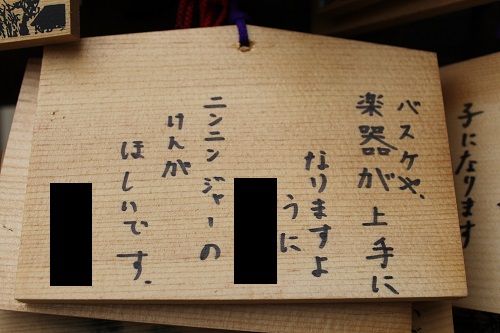 バスケや、
楽器が上手に
なりますよ
うに
ニンニンジャーの
けんが
ほしいです.
子になります